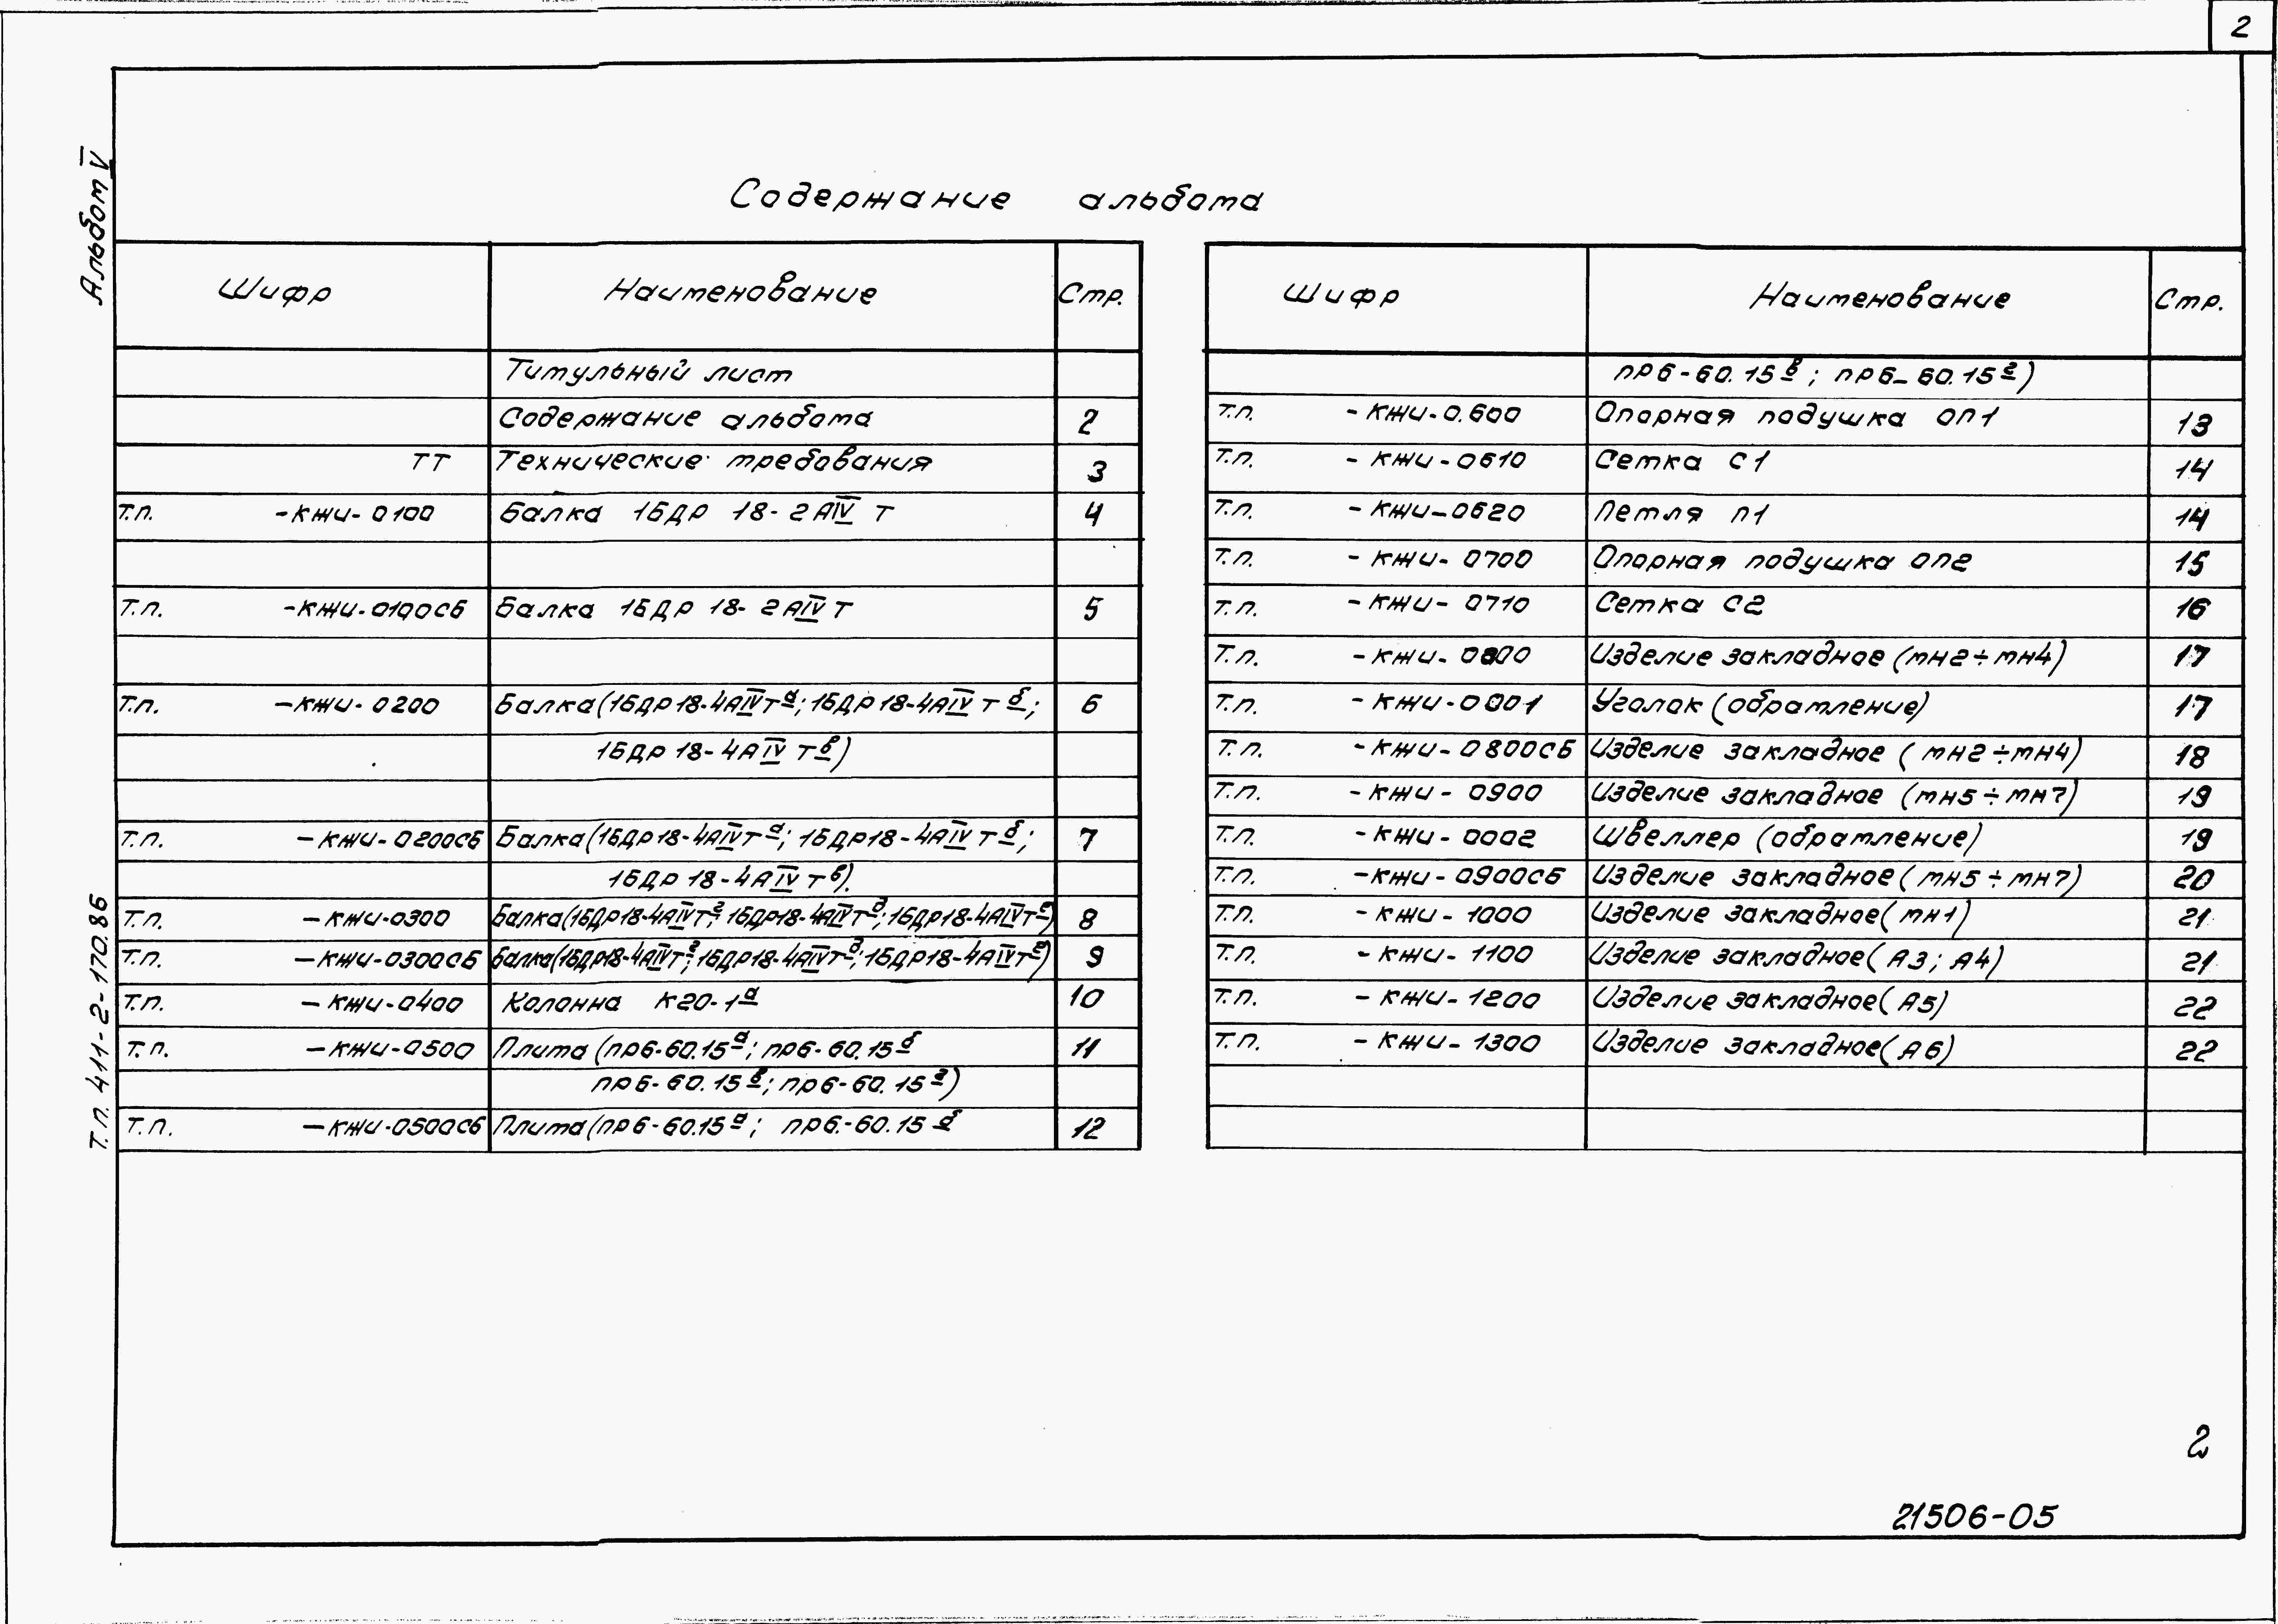 2
Альбом V
Содержание альбома
Шифр Наименование Стр.
Титульный лист
Содержание альбома 2
ТТ Технические требования 3
Т.п. -КЖИ-0100 Балка 1БДР 18-2АIV Т 4
Т.п. -КЖИ-0100СБ Балка 1БДР 18-2АIV Т 5
Т.п. -КЖИ-0200 Балка (1БДР18-4АIVТа; 1БДР18-4АIV Тб; 6
1БДР 18-4АIV Тв)
Т.п. -КЖИ-0200СБ Балка (1БДР18-4АIVТа; 1БДР18-4АIV Тб; 7
1БДР 18-4АIV Тв).
Т.п. -КЖИ-0300 Балка (1БДР18-4АIVТг; 1БДР18-4АIVТд; 1БДР18-4АIVТе) 8
Т.п. -КЖИ-0300СБ Балка (1БДР18-4АIVТг; 1БДР18-4АIVТд; 1БДР18-4АIVТе) 9
Т.п. -КЖИ-0400 Колонна К20-1а 10
Т.п. -КЖИ-0500 Плита (ПР6-60.15а; ПР6-60.15б 11
ПР6-60.15в; ПР6-60.15г)
Т.п. -КЖИ-0500СБ Плита (ПР6-60.15а; ПР6.-60.15б 12
Шифр Наименование Стр.
ПР6-60.15в; ПР6-60.15г)
Т.п. -КЖИ-0.600 Опорная подушка ОП1 13
Т.п. -КЖИ-0610 Сетка С1 14
Т.п. -КЖИ-0620 Петля П1 14
Т.п. -КЖИ-0700 Опорная подушка ОП2 15
Т.п. -КЖИ-0710 Сетка С2 16
Т.п. -КЖИ-0800 Изделие закладное (МН2÷МН4) 17
Т.п. -КЖИ-0001 Уголок (обрамление) 17
Т.п. -КЖИ-0800СБ Изделие закладное (МН2÷МН4) 18
Т.п. -КЖИ-0900 Изделие закладное (МН5÷МН7) 19
Т.п. -КЖИ-0002 Швеллер (обрамление) 19
Т.п. -КЖИ-0900СБ Изделие закладное (МН5÷МН7) 20
Т.п. -КЖИ-1000 Изделие закладное (МН1) 21
Т.п. -КЖИ-1100 Изделие закладное (А3; А4) 21
Т.п. -КЖИ-1200 Изделие закладное (А5) 22
Т.п. -КЖИ-1300 Изделие закладное (А6) 22
Т.П. 411-2-170.86
2
21506-05